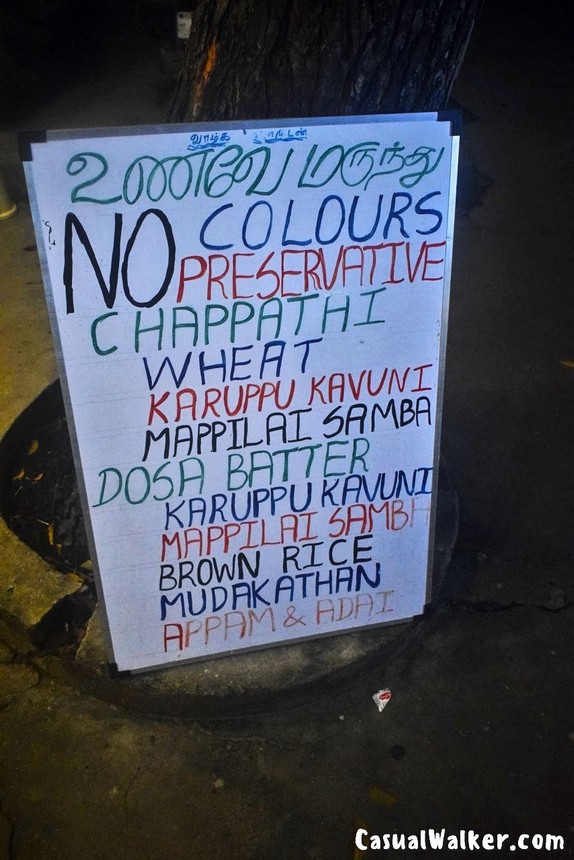 வாழ்க
உணவே மருந்து
NO COLOURS
PRESERVATIVE
CHAPPATHI
WHEAT
KARUPPU KAVUNI
MAPPILAI SAMBA
DOSA BATTER
KARUPPU KAVUNI
MAPPILAI SAMBA
BROWN RICE
MUDAKATHAN
APPAM & ADAI
CASUALWALKER.com